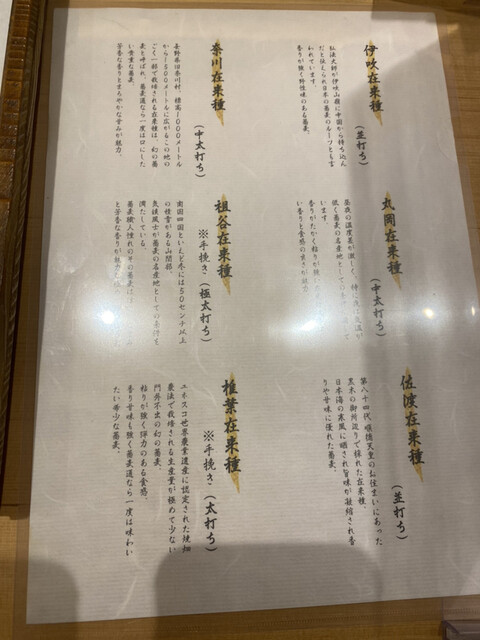 伊吹在来種
（並打ち）
弘法大師が伊吹山麓に中国から持ち込ん
だと伝えられ日本の蕎麦のルーツとも言
われています。
香りが強く野性味のある蕎麦。
奈川在来種
（中太打ち）
長野県旧奈川村、標高1000メートル
から1500メートルに広がるこの地の
ごく一部で栽培される在来種は、幻の蕎
麦と呼ばれ、蕎麦通なら一度は口にした
い貴重な蕎麦。
芳香な香りとまろやかな甘みが魅力。
丸岡在来種
（中太打ち）
昼夜の温度差が激しく、
低く蕎麦の名産地としての
います。
祖谷在来種
※手挽き（極太打ち）
南国四国といえど冬には50センチ以上
の積雪がある山間部。
気候風土が蕎麦の名産地としての条件を
満たしている。
蕎麦職人憧れのその蕎麦は
と芳香な香りが魅力
佐渡在来種
（並打ち）
第八十四代 順徳天皇のお住まいにあった
黒木の御所辺りで採れた在来種。
日本海の寒風に晒され旨味が凝縮され香
りや甘味に優れた蕎麦。
椎葉在来種
※手挽き（太打ち）
ユネスコ世界農業遺産に認定された焼畑
農法で栽培される生産量が極めて少ない
門外不出の幻の蕎麦。
粘りが強く弾力のある食感。
香り甘味も強く蕎麦通なら一度は味わい
たい希少な蕎麦。